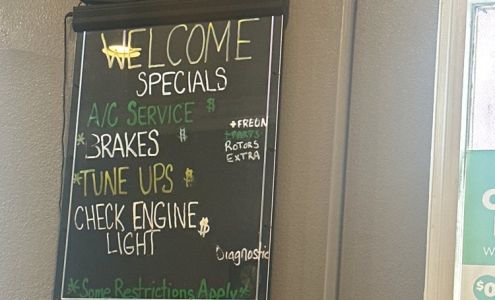 WELCOME
SPECIALS
A/C SERVICE $
+ FREON
*BRAKES $
+PARTS
ROTORS
EXTRA
*TUNE UPS $
CHECK ENGINE $
LIGHT
Diagnostic
*Some Restrictions Apply*